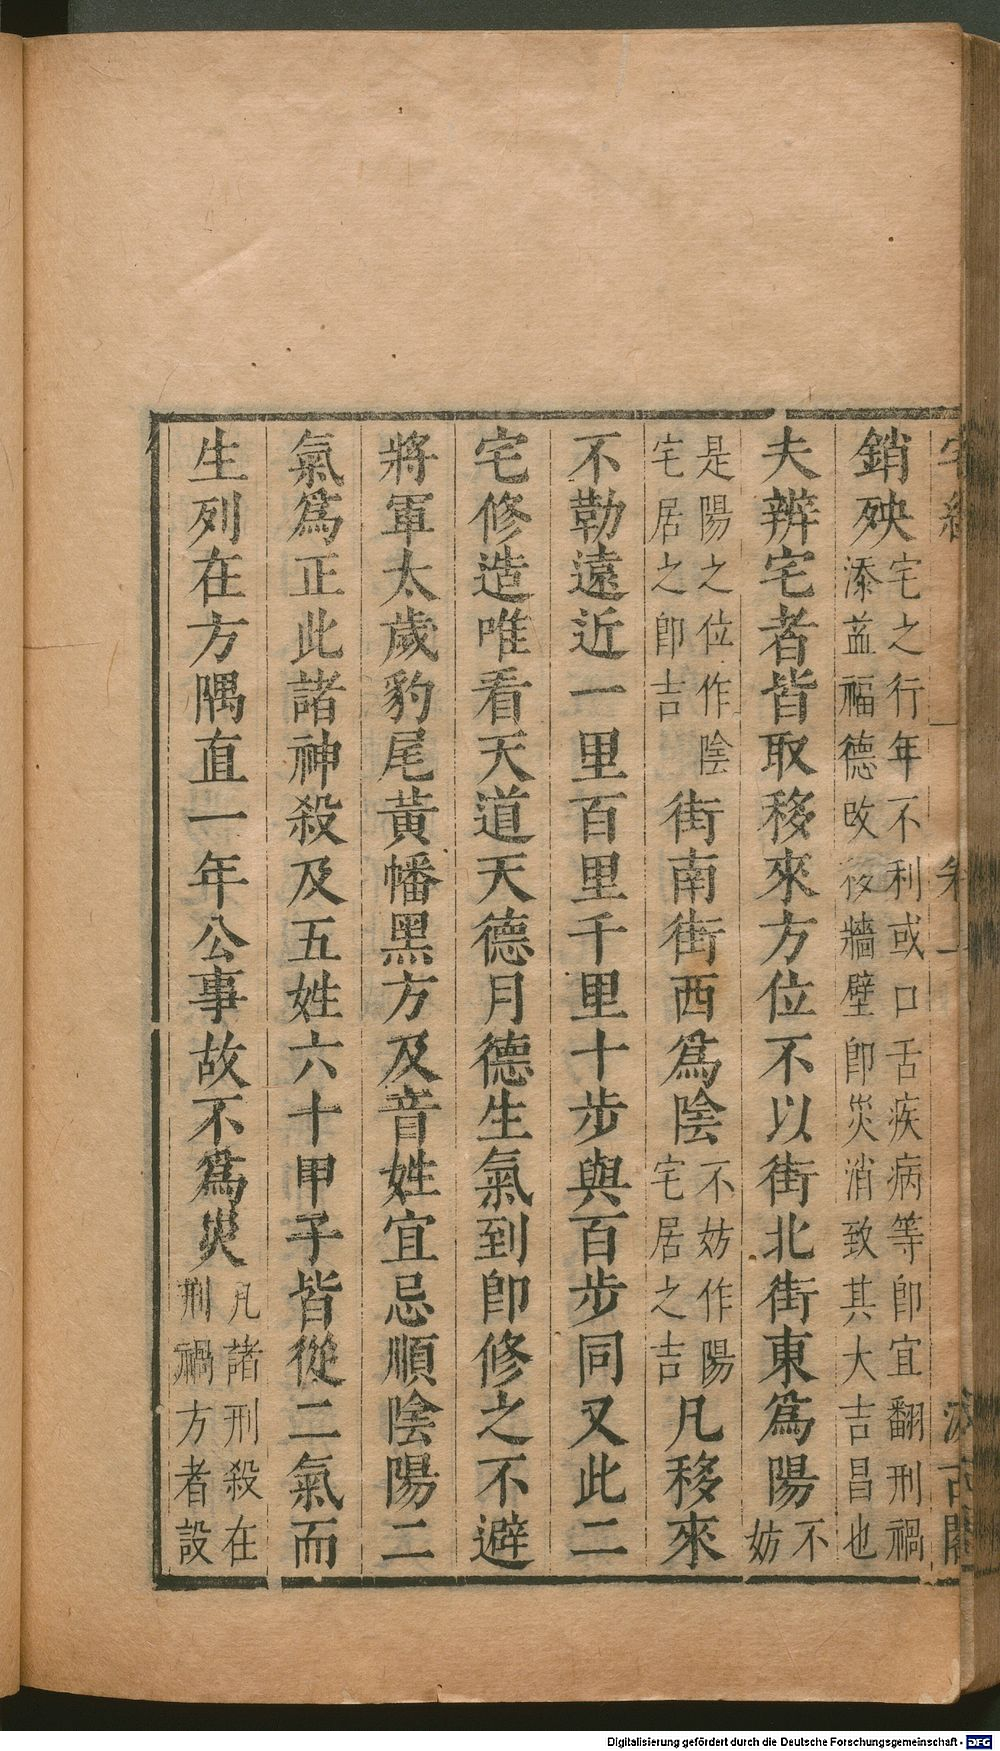 宅經 卷一 汲古閣
銷殃宅之行年不利或口舌疾病等卽宜翻刑禍
添葢福德攺移牆壁卽災消致其大吉昌也
夫辨宅者皆取移來方位不以街北街東爲陽不
妨
是陽之位作陰
宅居之卽吉
街南街西爲陰不妨作陽
宅居之吉
凡移來
不勒遠近一里百里千里十步與百步同又此二
宅修造唯看天道天德月德生氣到卽修之不避
將軍太歲豹尾黃幡黑方及音姓宜忌順陰陽二
氣爲正此諸神殺及五姓六十甲子皆從二氣而
生列在方隅直一年公事故不爲災凡諸刑殺在
刑禍方者設
Digitalisierung gefördert durch die Deutsche Forschungsgemeinschaft - DFG